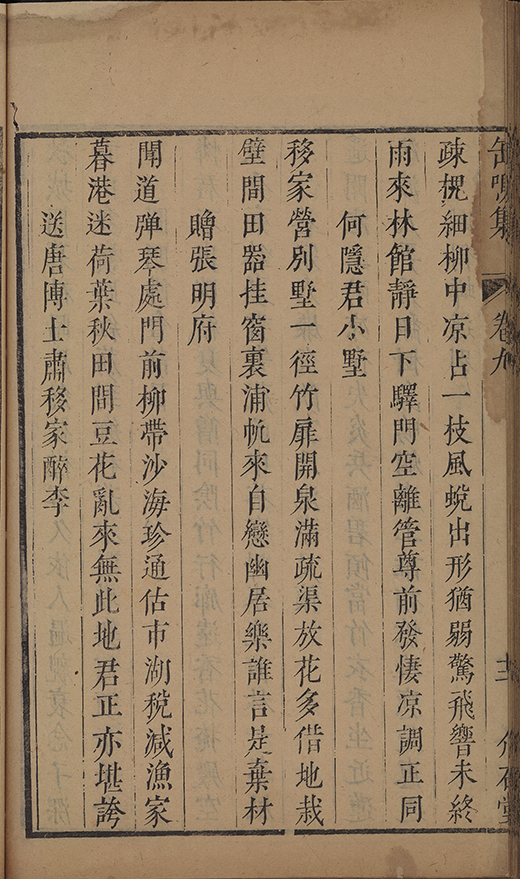 缶鳴集 卷九 十二
疎槐細柳中凉占一枝風蛻出形猶弱驚飛響未終
雨來林館靜日下驛門空離管尊前發悽凉調正同
何隱君小墅
移家營別墅一徑竹扉開泉滿疏渠放花多借地栽
壁間田器挂窗裏浦帆來自戀幽居樂誰言是棄材
贈張明府
聞道弹琴處門前柳帶沙海珍通估市湖稅減漁家
暮港迷荷葉秋田間豆花亂來無此地君正亦堪誇
送唐博士肅移家醉李